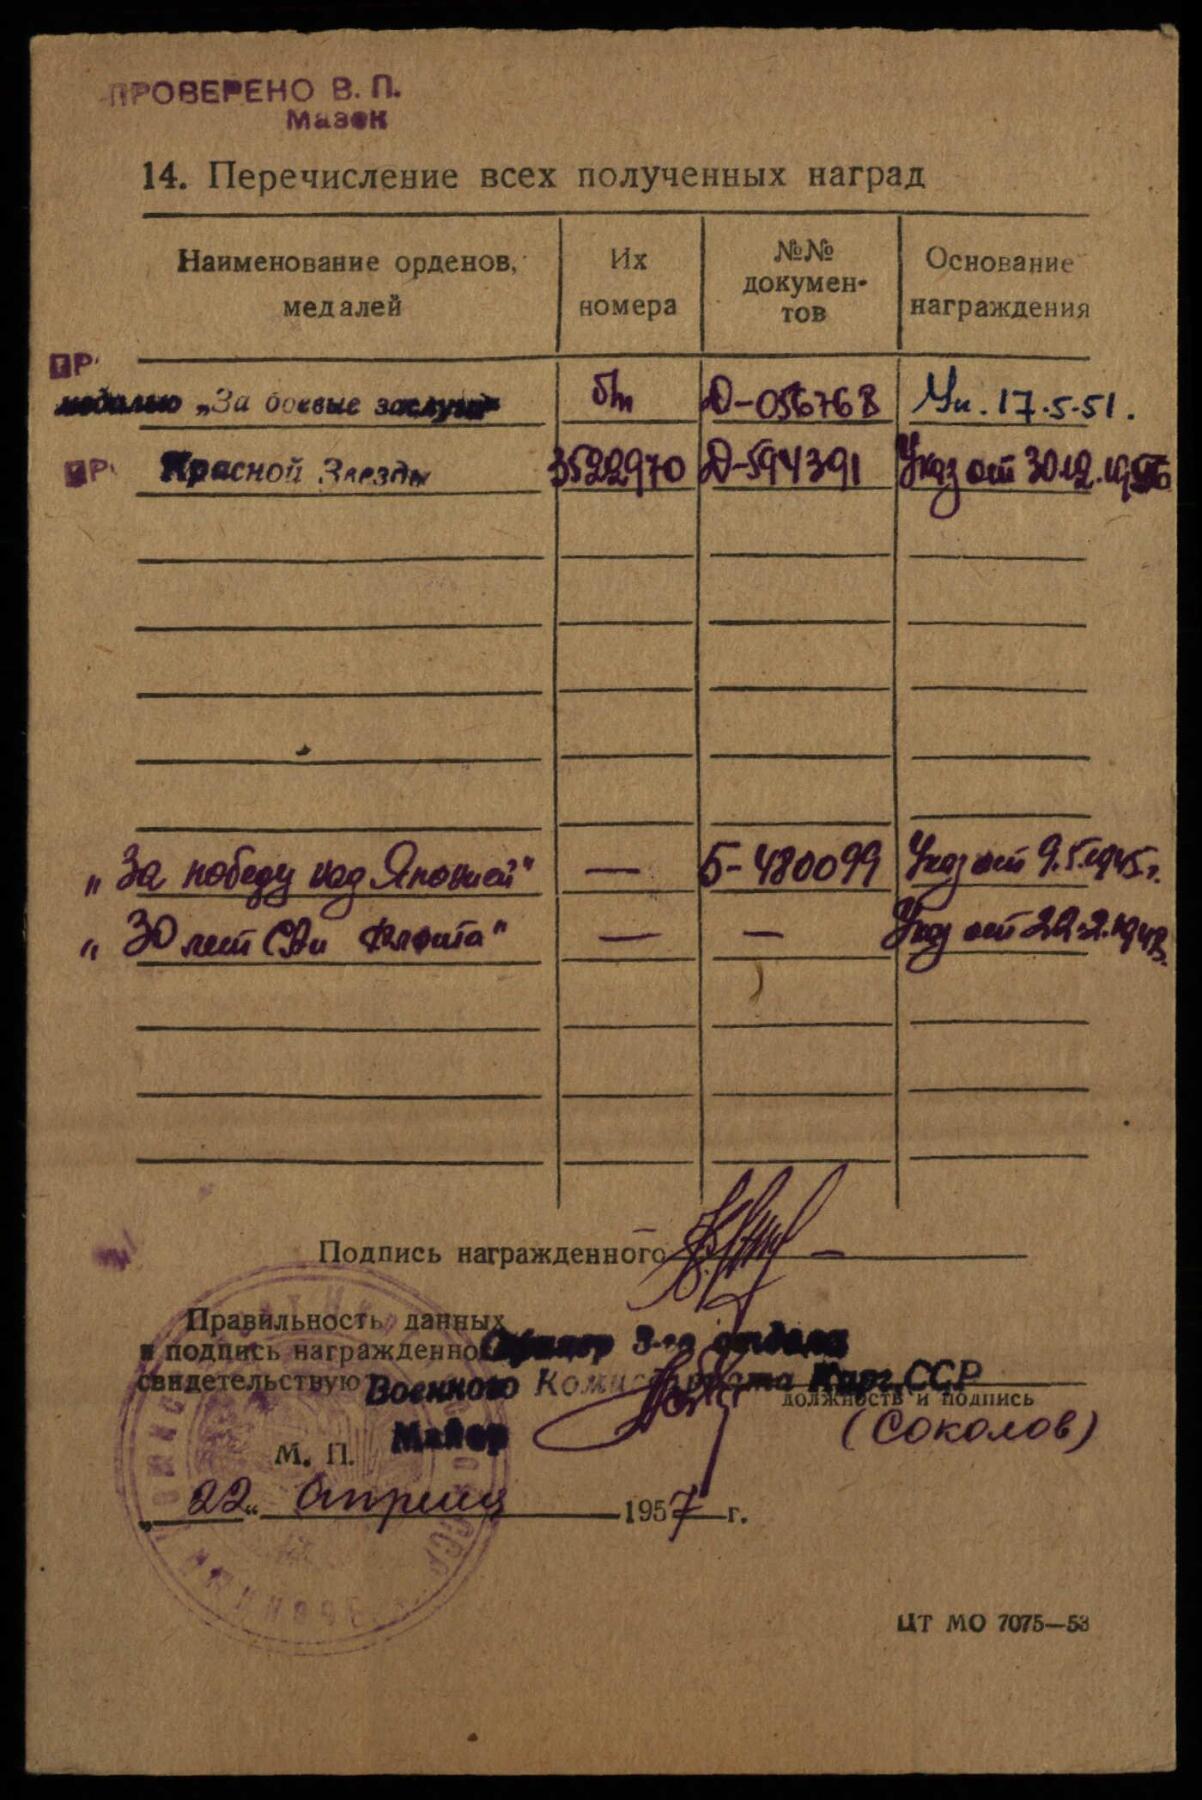 ПРОВЕРЕНО В. П.
Мазек
14. Перечисление всех полученных наград
Наименование орденов, медалей
Их номера
№№ докумен-тов
Основание награждения
ПР
медалью „За боевые заслуги" б/н Д-056768 Ук. 17.5.51.
ПР Красной Звезды 3522970 Д-594391 Указ от 30.12.1956
„За победу над Японией" — Б-480099 Указ от 9.5.1945г.
„30 лет СА и Флота" — — Указ от 22.2.1948.
Подпись награжденного
Правильность данных
и подпись награжденного Офицер 3-го отдела
свидетельствую Военного Комиссариата Кирг.ССР
должность и подпись
Майор (Соколов)
М. П.
„22„ апреля 1957 г.
ЦТ МО 7075—53